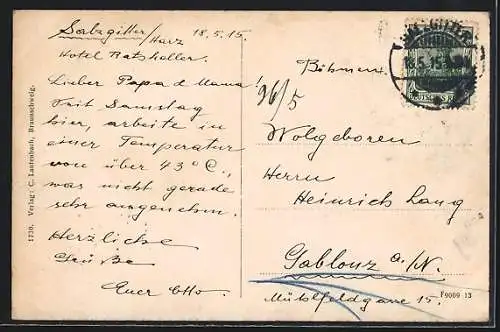 Salzgitter/Harz 18.5.15.
Hotel Ratskeller.
Lieber Papa & Mama!
Seit Samstag
hier, arbeite in
einer Temperatur
von über 43°C.,
was nicht gerade
sehr angenehm.
Herzliche
Grüße
Euer Otto.
1730. Verlag: C. Lautenbach, Braunschweig.
Böhmen.
26/5
Wolgeboren
Herrn
Heinrich Lang
Gablonz a./N.
Mühlfeldgasse 15.
F9069 13